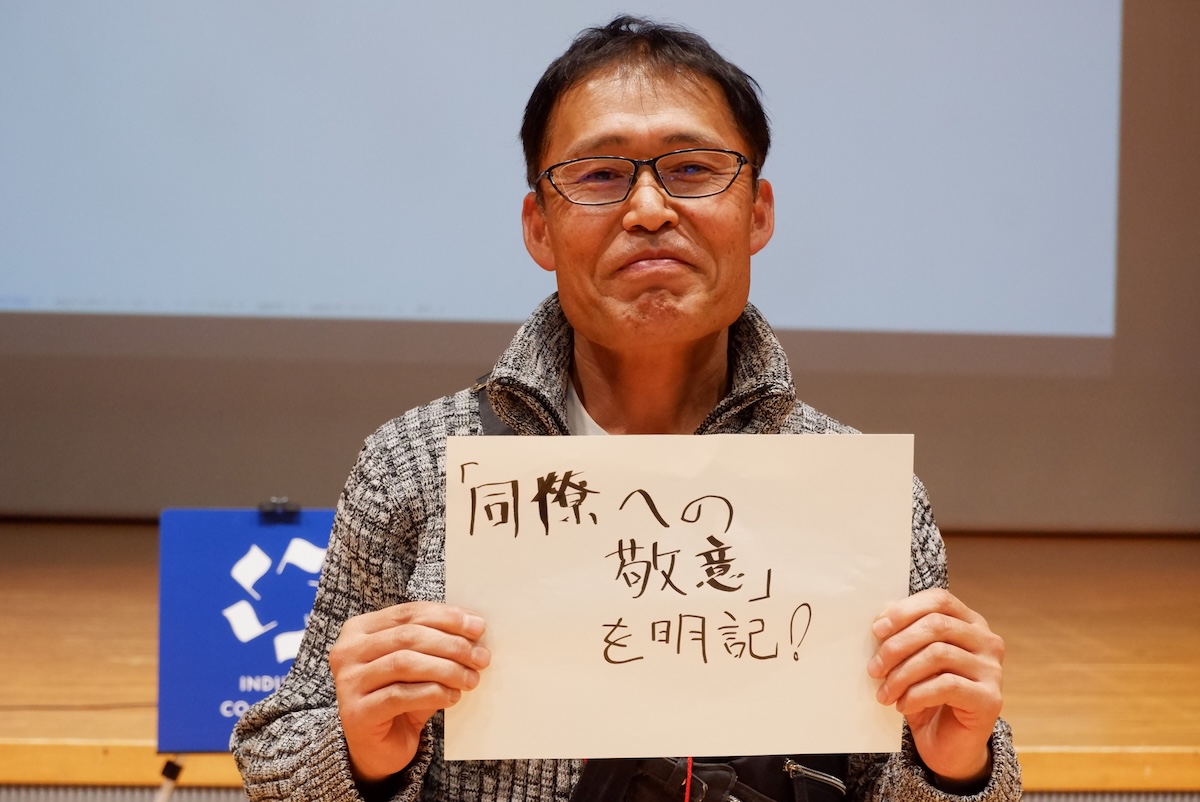 「同僚への
敬意」
を明記!
INDI
CO